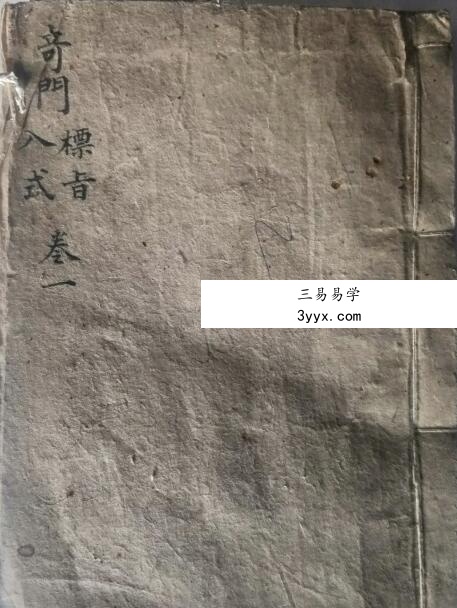 奇門
標旨
入式
卷一
三易易学
3yyx.com